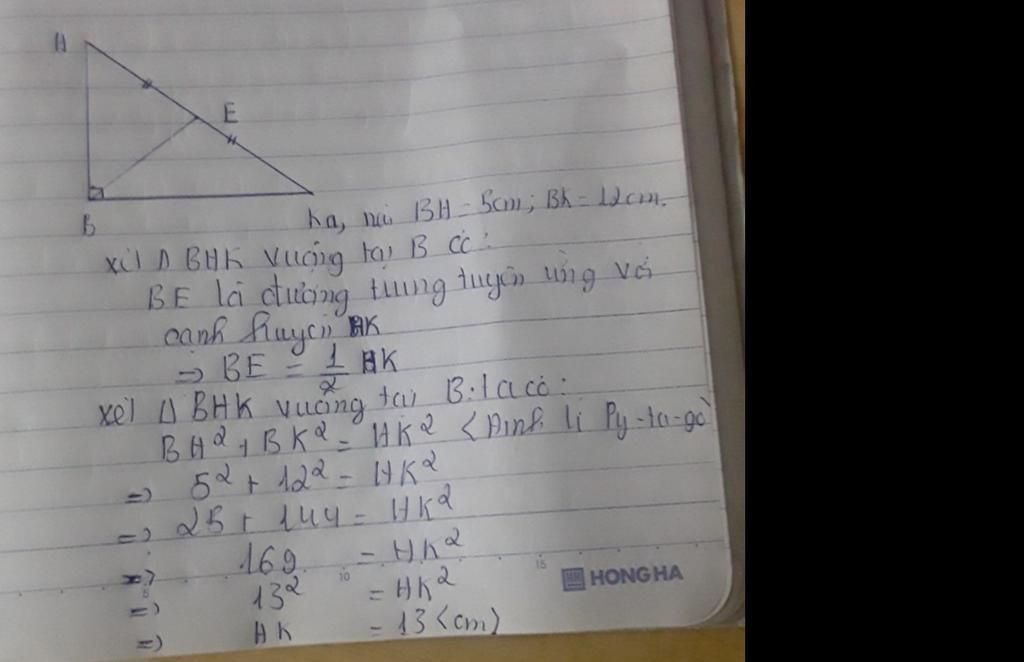 H
E
B
BH = 5cm; BK = 12cm.
xét Δ BHK vuông tại B có:
BE là đường trung tuyến ứng với
cạnh huyền HK
=> BE = 1/2 HK
xét Δ BHK vuông tại B. ta có:
BH² + BK² = HK² <Định lí Py-ta-go
=> 5² + 12² = HK²
=> 25 + 144 = HK²
=> 169 = HK²
=> 13² = HK²
=> HK = 13 <cm)
5 10 15
HONG HA